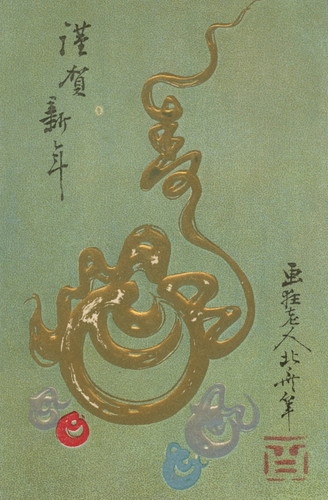 謹賀
新年
寿
画狂老人北斎筆